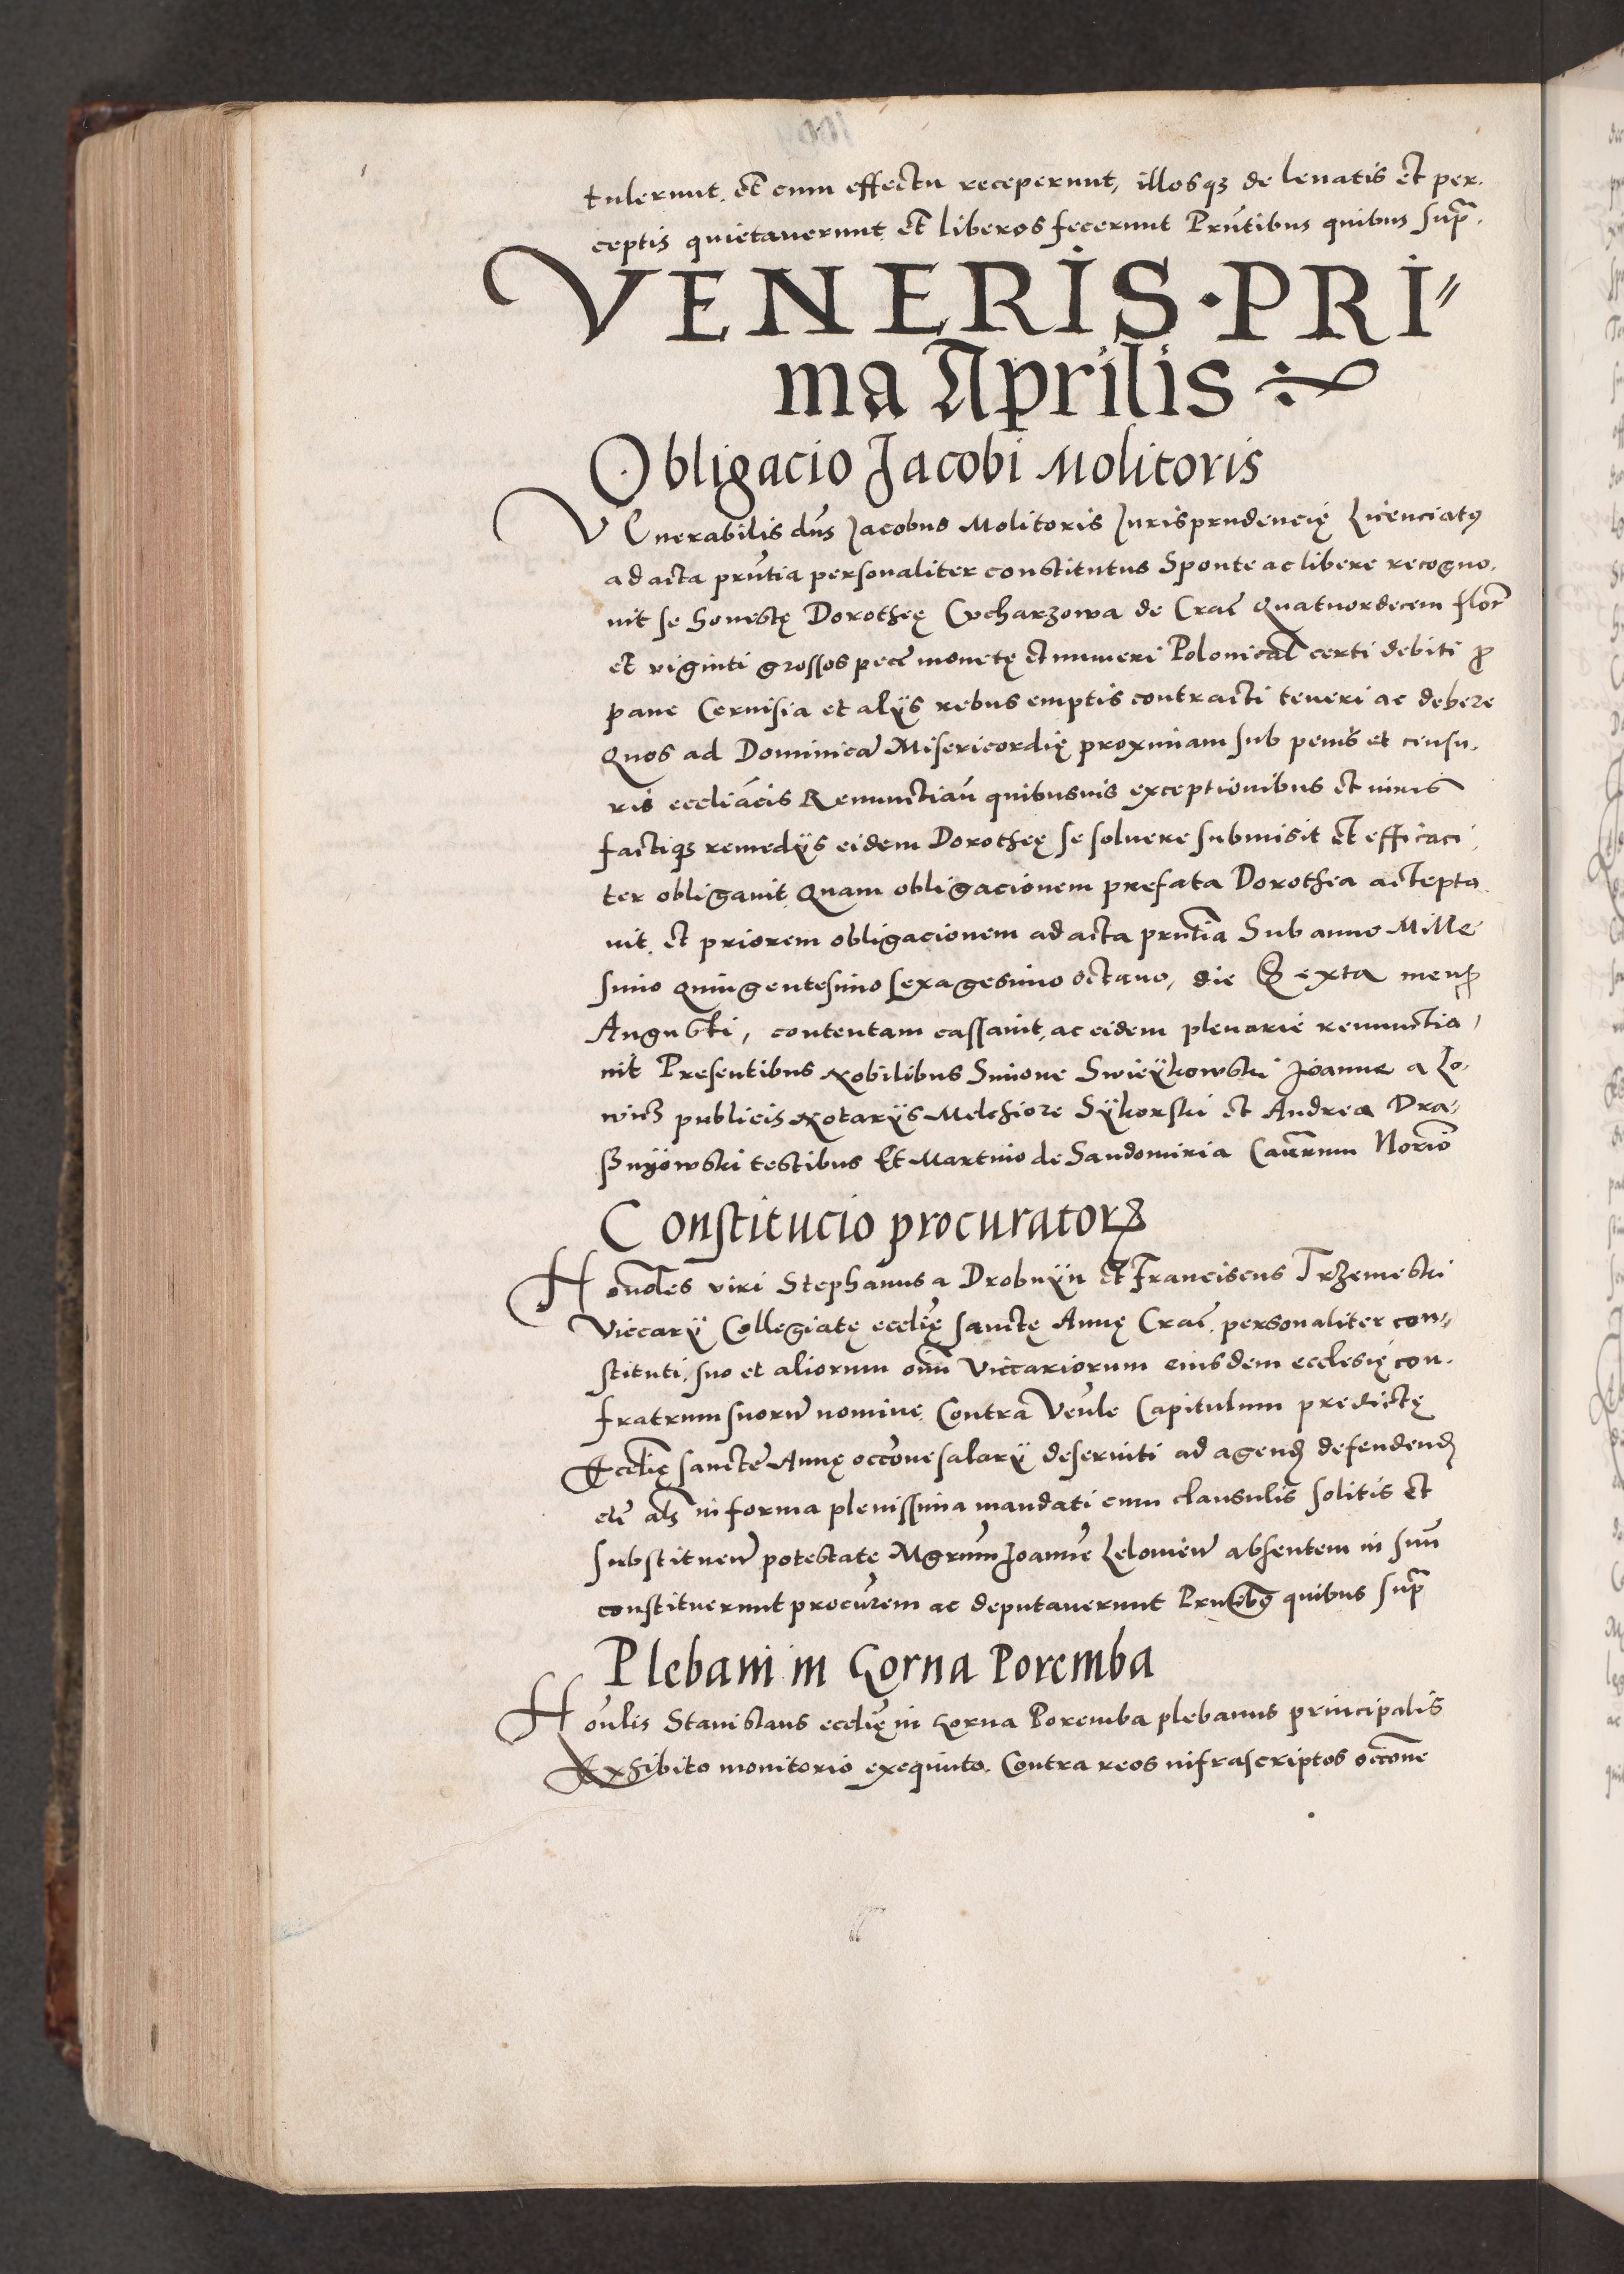 tulerunt. et cum effectu receperunt, illosqz de leuatis et per-
ceptis quietauerunt et liberos fecerunt Prntibus quibus supra.
VENERIS · PRI〃
ma Aprilis
Obligacio Jacobi Molitoris
VEnerabilis dns Jacobus Molitoris Jurisprudencię Licenciatus
ad acta prntia personaliter constitutus Sponte ac libere recogno-
uit se honestę Dorotheę Cycharzowa de Crac quatuordecem flor
et viginti grossos pece monetę et numeri Polonical certi debiti pro
pane Ceruisia et alijs rebus emptis contracti teneri ac debere
Quos ad Dominica Misericordię proximam sub penis et censu-
ris eccliacis Renunctian quibusuis exceptionibus et iuris
factiqz remedijs eidem Dorotheę se soluere submisit et efficaci
ter obligauit. Quam obligacionem prefata Dorothea accepta
uit. et priorem obligacionem ad acta prntia Sub anno Mille
simo quingentesimo sexagesimo octauo, die Sexta mens
Augusti, contentam cassauit, ac eidem plenarie renunctia
uit Presentibus Nobilibus Simone Swieykowski Joanne a Lo-
wicz publicis Notarijs Melchiore Sykorski et Andrea Dra-
sznyowski testibus Et Martino de Sandomiria Causarum Norio
Constitucio procuratorum
Honoles viri Stephanus a Drobnyn et Franciscus Trzemeski
Viccarij Collegiatę ecclię sanctę Annę Crac. personaliter con-
stituti, suo et aliorum oim Viccariorum eiusdem ecclesię con-
fratrum suorum nomine Contra Venle Capitulum predictę
Ecclię sancte Annę occone salarij deseruiti ad agend defendend
etc als in forma plenissima mandati cum clausulis solitis et
substituen potestate Mgrum Joanne Lelouien absentem in suu
constituerunt procurem ac deputauerunt Prntibus quibus supra
Plebani in Gorna Poremba
Honlis Stanislaus ecclię in Gorna Poremba plebanus principalis
Exhibito monitorio exequuto. Contra reos infrascriptos occone